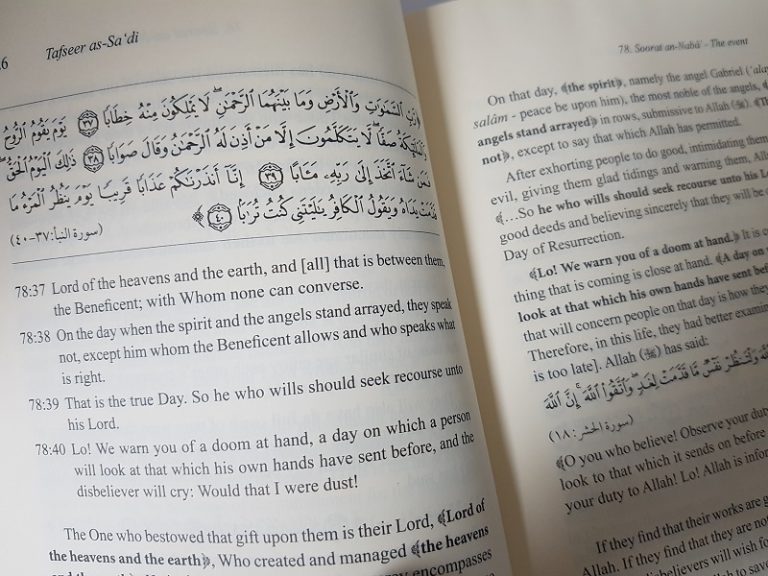 6
Tafseer as-Sa‘di
رَّبِّ ٱلسَّمَٰوَٰتِ وَٱلْأَرْضِ وَمَا بَيْنَهُمَا ٱلرَّحْمَٰنِ ۖ لَا يَمْلِكُونَ مِنْهُ خِطَابًا ٣٧ يَوْمَ يَقُومُ ٱلرُّوحُ
وَٱلْمَلَٰٓئِكَةُ صَفًّا ۖ لَّا يَتَكَلَّمُونَ إِلَّا مَنْ أَذِنَ لَهُ ٱلرَّحْمَٰنُ وَقَالَ صَوَابًا ٣٨ ذَٰلِكَ ٱلْيَوْمُ ٱلْحَقُّ ۖ
فَمَن شَآءَ ٱتَّخَذَ إِلَىٰ رَبِّهِۦ مَـَٔابًا ٣٩ إِنَّآ أَنذَرْنَٰكُمْ عَذَابًا قَرِيبًا يَوْمَ يَنظُرُ ٱلْمَرْءُ مَا
قَدَّمَتْ يَدَاهُ وَيَقُولُ ٱلْكَافِرُ يَٰلَيْتَنِى كُنتُ تُرَٰبًا ٤٠ ﴾
(سورة النبأ: ٣٧-٤٠)
78:37 Lord of the heavens and the earth, and [all] that is between them,
the Beneficent; with Whom none can converse.
78:38 On the day when the spirit and the angels stand arrayed, they speak
not, except him whom the Beneficent allows and who speaks what
is right.
78:39 That is the true Day. So he who wills should seek recourse unto
his Lord.
78:40 Lo! We warn you of a doom at hand, a day on which a person
will look at that which his own hands have sent before, and the
disbeliever will cry: Would that I were dust!
The One who bestowed that gift upon them is their Lord, ﴾Lord of
the heavens and the earth﴿, Who created and managed ﴾the heavens
encompasses
78. Soorat an-Nabâ’ - The event
On that day, ﴾the spirit﴿, namely the angel Gabriel (‘alay
salâm - peace be upon him), the most noble of the angels,
angels stand arrayed﴿ in rows, submissive to Allah (ﷻ).
not﴿, except to say that which Allah has permitted.
After exhorting people to do good, intimidating them
evil, giving them glad tidings and warning them,
﴾…So he who wills should seek recourse unto his
good deeds and believing sincerely that they will be
Day of Resurrection.
﴾Lo! We warn you of a doom at hand.﴿ It is
thing that is coming is close at hand. ﴾A day on
look at that which his own hands have sent before
that will concern people on that day is how they
Therefore, in this life, they had better
is too late]. Allah (ﷻ) has said:
وَلْتَنظُرْ نَفْسٌ مَّا قَدَّمَتْ لِغَدٍ ۖ وَٱتَّقُوا۟ ٱللَّهَ ۚ إِنَّ ٱللَّهَ
(سورة الحشر: ١٨)
﴾O you who believe! Observe your duty
look to that which it sends on before
your duty to Allah! Lo! Allah is
If they find that their works are
Allah. If they find that they are
disbelievers will wish
Allah to